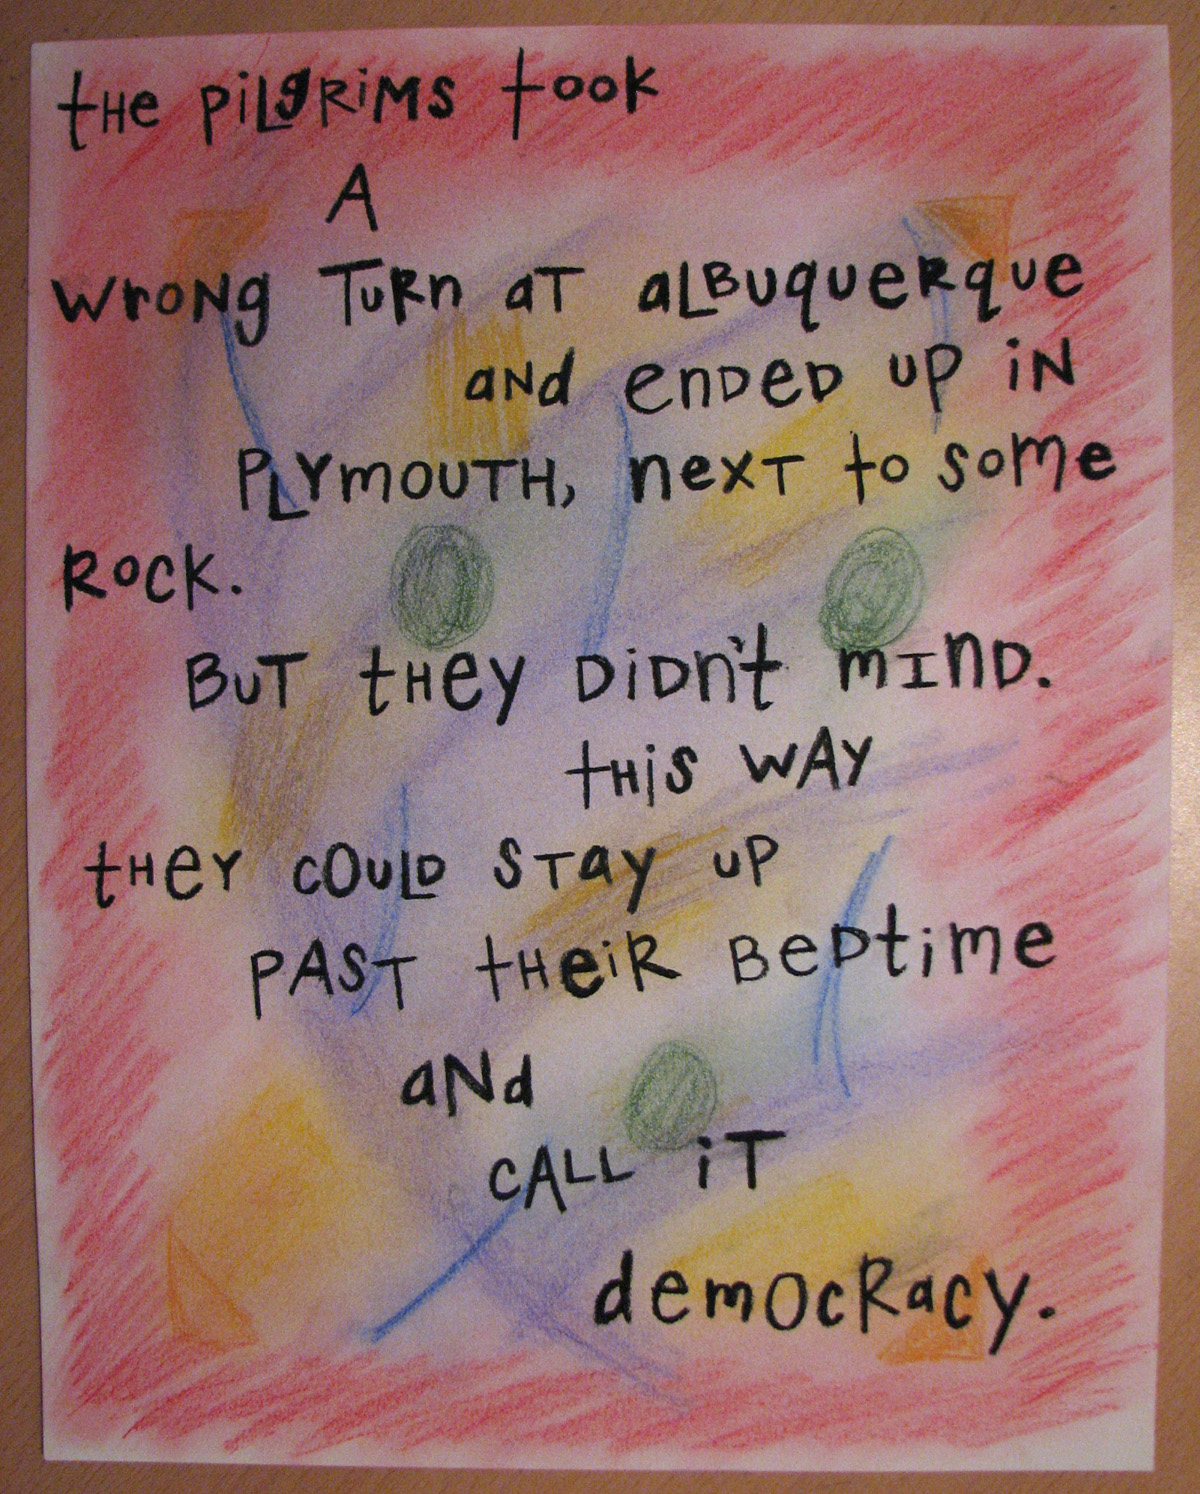 tHe PiLgRiMS took
A
wroNg TuRn aT aLBuqueRque
aNd enDeD uP iN
PLYmOUTH, nexT to some
RocK.
BuT tHey DiDn't mIND.
tHiS WAY
tHeY cOuLD STay uP
PAST tHeiR BeDtime
aNd
CALL iT
demOcRacy.